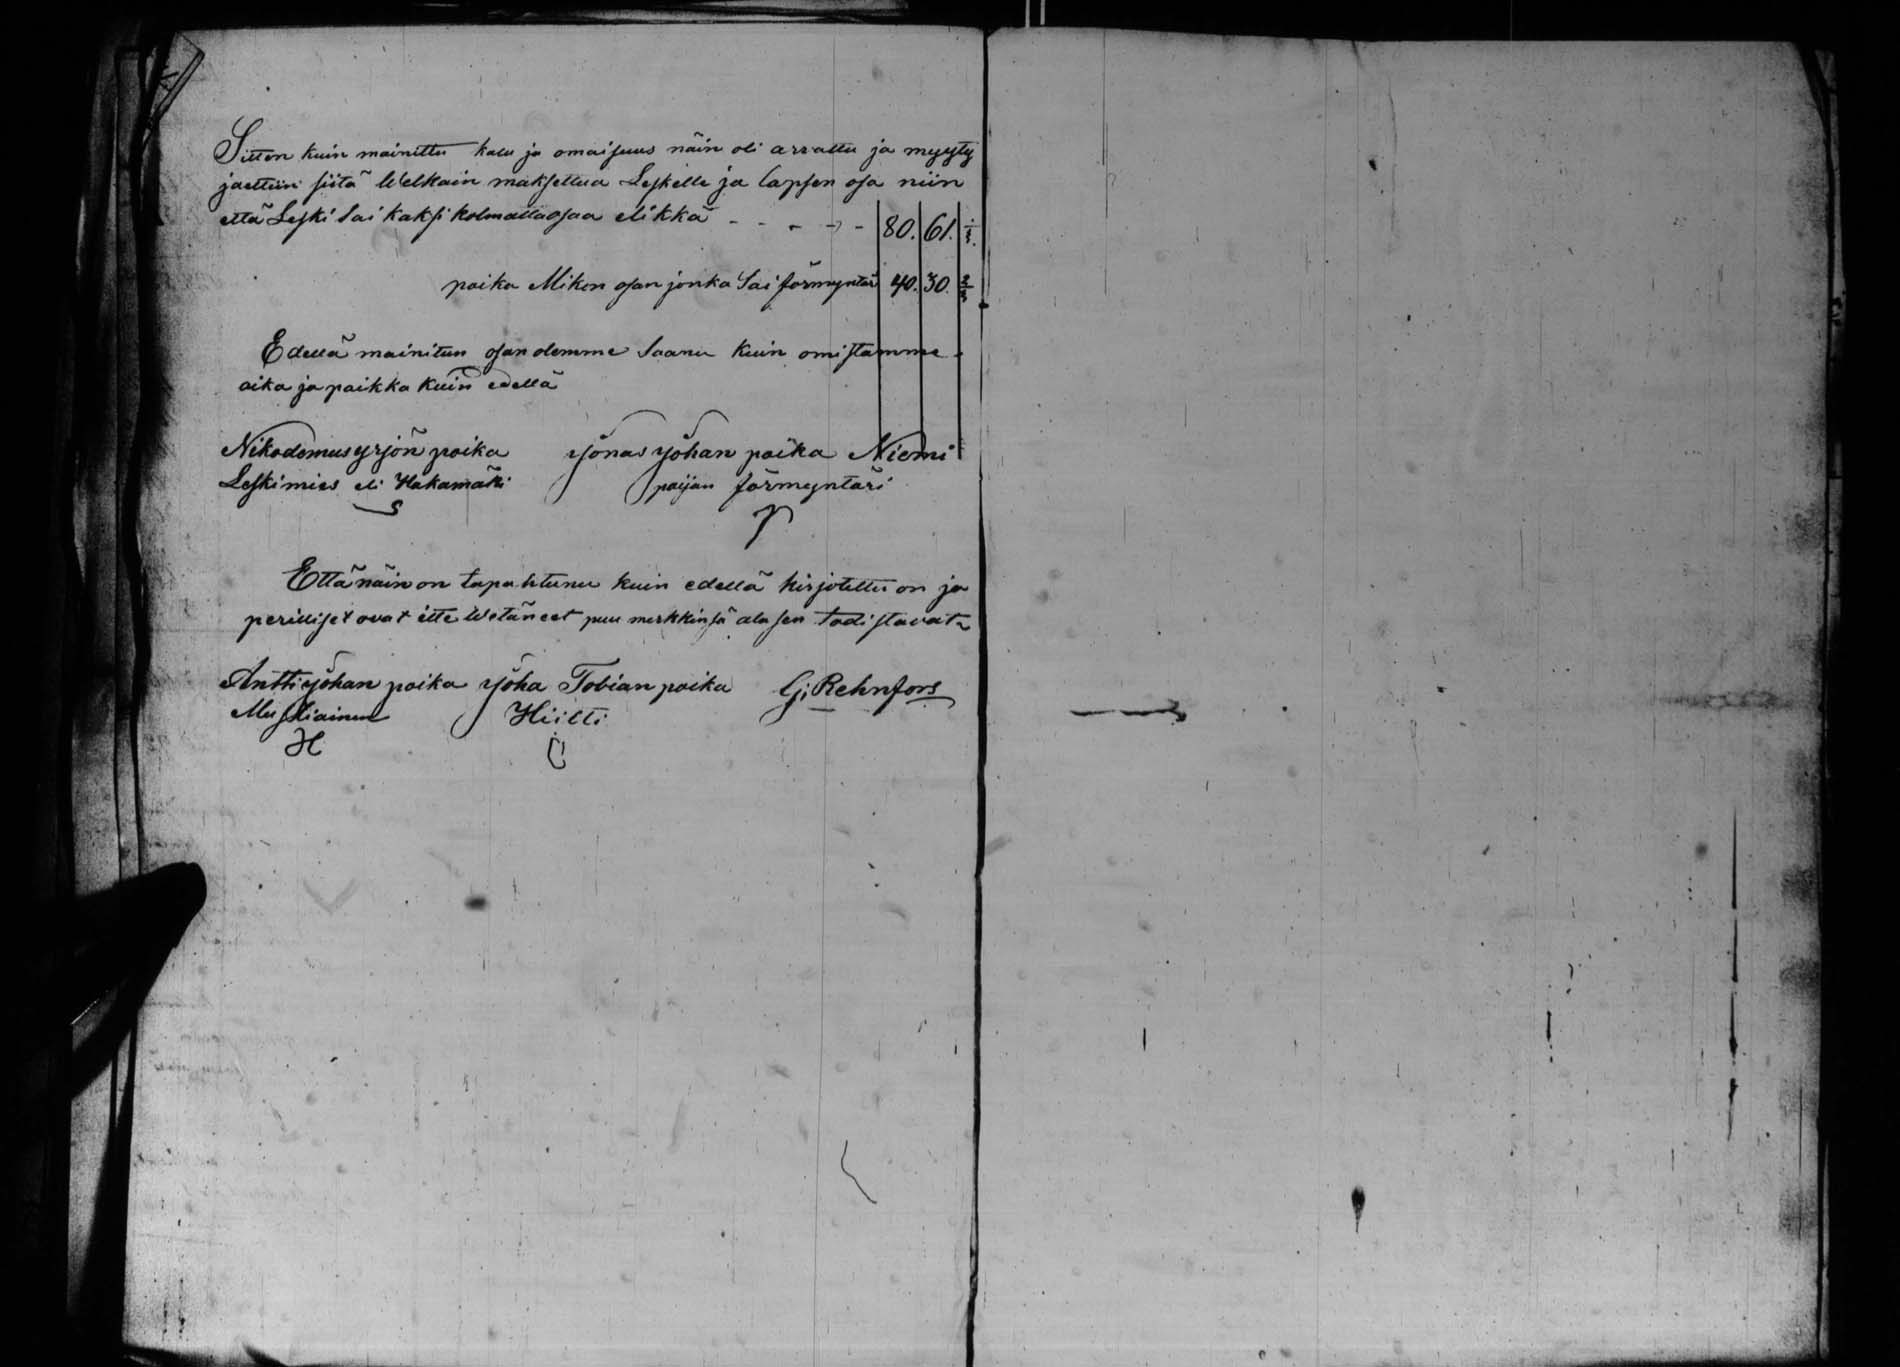 Sitten kuin mainittu kalu ja omaisuus näin oli arvattu ja myyty
jaettiin siitä Welkain maksettua Leskelle ja lapsen osa niin
että Leski Sai kaksi kolmattaosaa elikkä - - - - - 80. 61. 1/3.
poika Mikon osan jonka Sai förmyntäri 40. 30. 2/3
Edellä mainitun osan olemme Saanu kuin omistamme.
aika ja paikka kuin edellä
Nikodemus yrjön poika Jonas Johan poika Niemi
Leskimies eli Hakamäki pojan förmyntäri
Että näin on tapahtunu kuin edellä kirjotettu on ja
perilliset ovat itte Wetäneet puu merkkinsä ala sen todistavat
Antti Johan poika Joha Tobian poika G; Rehnfors
Muhliainen Hiitti
H